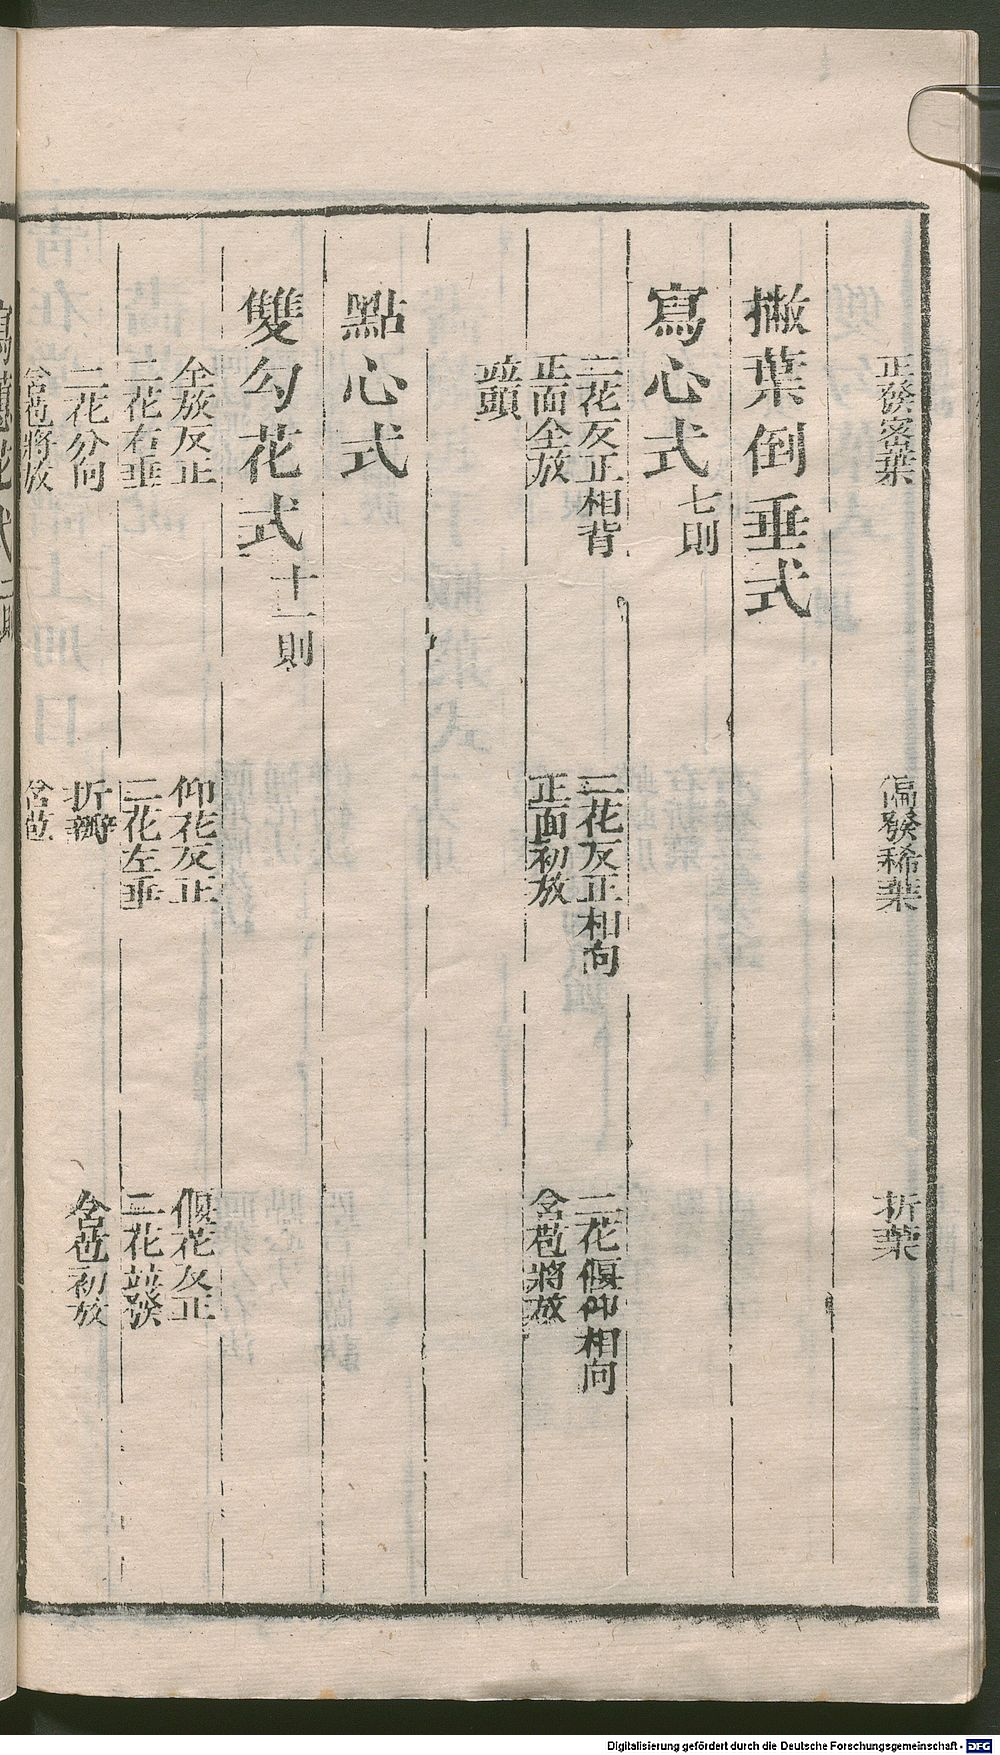 正發密葉　偏發稀葉　折葉
撇葉倒垂式
寫心式七則
二花反正相背　二花反正相向　二花偃仰相向
正面全放　正面初放　含苞將放
並頭
點心式
雙勾花式十一則
全放反正　仰花反正　偃花反正
二花右垂　二花左垂　二花並發
二花分向　折瓣　含苞初放
含苞將放　含苞
Digitalisierung gefördert durch die Deutsche Forschungsgemeinschaft - DFG